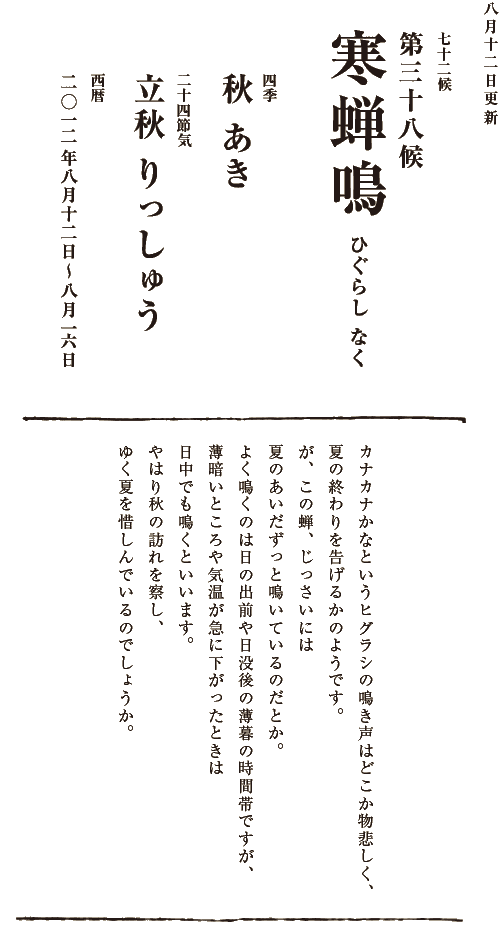 八月十二日更新
七十二候
第三十八候
寒蝉鳴 ひぐらし なく
四季
秋 あき
二十四節気
立秋 りっしゅう
西暦
二〇一二年八月十二日~八月一六日
カナカナかなというヒグラシの鳴き声はどこか物悲しく、
夏の終わりを告げるかのようです。
が、この蝉、じっさいには
夏のあいだずっと鳴いているのだとか。
よく鳴くのは日の出前や日没後の薄暮の時間帯ですが、
薄暗いところや気温が急に下がったときは
日中でも鳴くといいます。
やはり秋の訪れを察し、
ゆく夏を惜しんでいるのでしょうか。